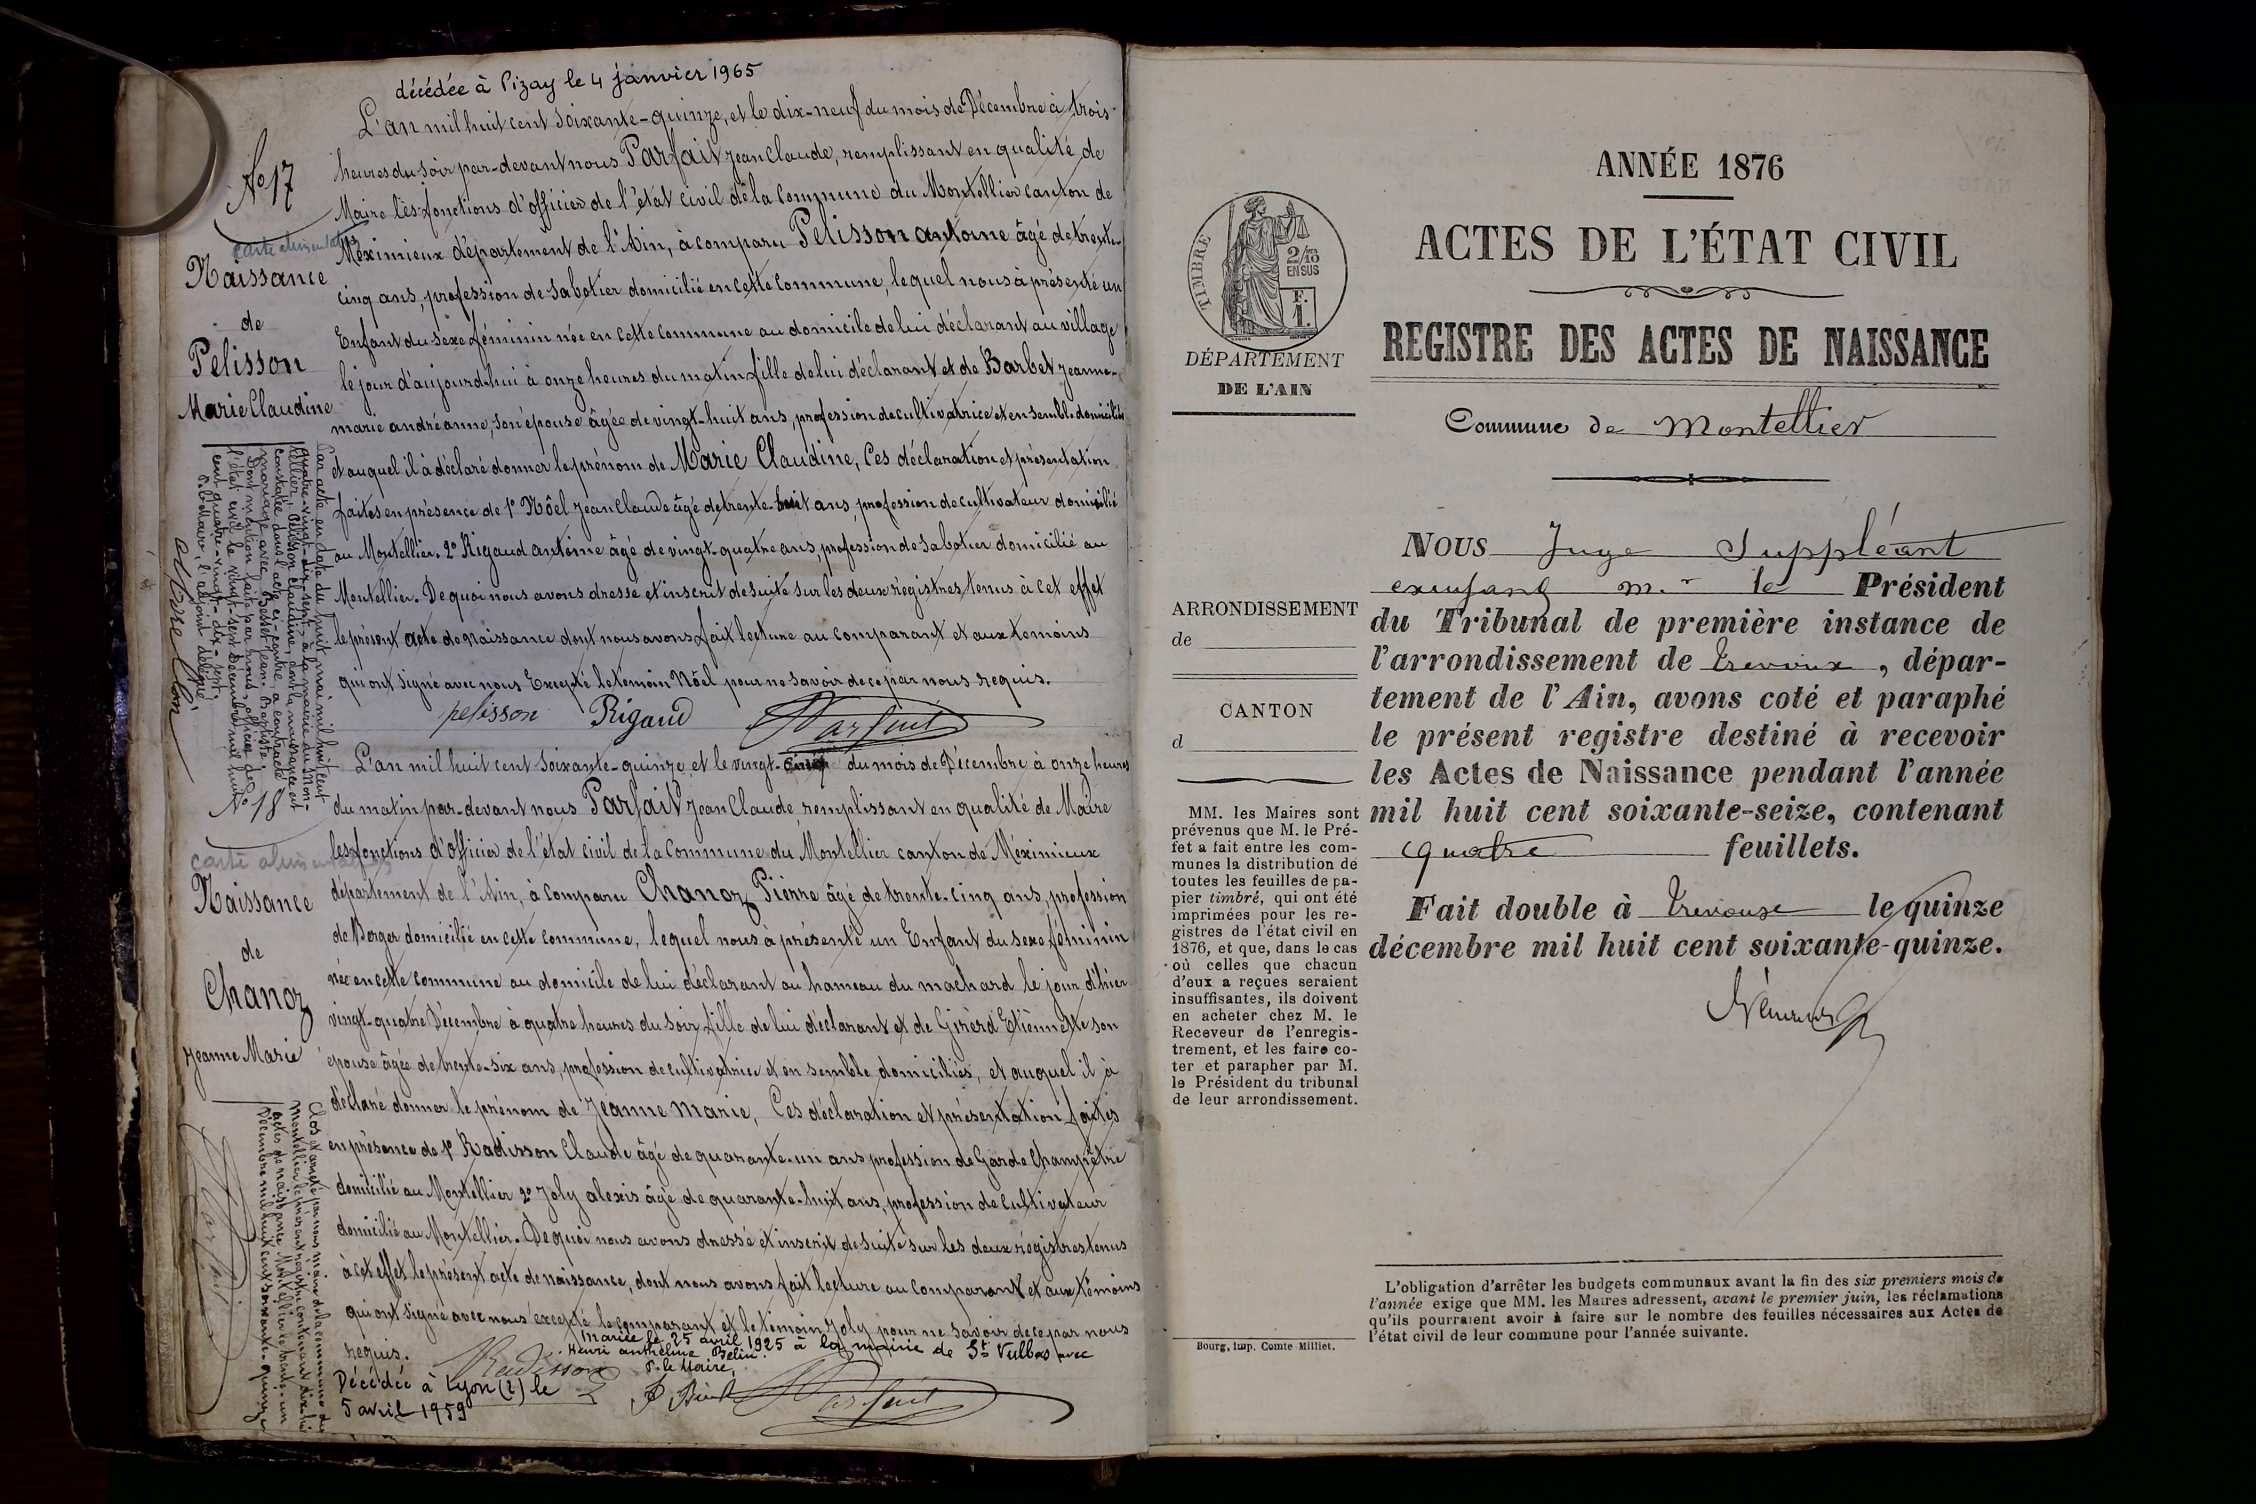 décédée à Pizay le 4 janvier 1965
No 17
carte alimentation
Naissance
de
Pelisson
Marie Claudine
L'an mil huit cent soixante-quinze, et le dix-neuf du mois de Décembre à trois
heures du soir par-devant nous Parfait Jean Claude, remplissant en qualité de
Maire les fonctions d'officier de l'état civil de la commune du Montellier canton de
Méximieux département de l'Ain, à comparu Pelisson antoine âgé de trente-
cinq ans, profession de Sabotier domicilié en cette commune, lequel nous à présenté un
Enfant du sexe féminin née en cette commune au domicile de lui déclarant au village
le jour d'aujourd'hui à onze heures du matin fille de lui déclarant et de Barbet Jeanne-
marie andréanne, son épouse âgée de vingt-huit ans, profession de cultivatrice et ensemble domiciliés
et auquel il à déclaré donner le prénom de Marie Claudine, Ces déclaration et présentation
faites en présence de 1o Nôel Jean Claude âgé de trente-huit ans, profession de cultivateur domicilié
au Montellier. 2o Rigaud antoine âgé de vingt-quatre ans, profession de sabotier domicilié au
Montellier. De quoi nous avons dressé et inscrit de suite sur les deux régistres tenus à cet effet
le présent acte de naissance dont nous avons fait lecture au comparant et aux témoins
qui ont signé avec nous Excepté le témoin Nôel pour ne savoir de ce par nous requis.
pelisson Rigaud Parfait
Par acte en date du huit mai mil huit cent
quatre-vingt-dix-sept, à la mairie du Mon-
tellier, Pélisson Claudine, dont la naissance est
constatée dans l'acte ci-contre, a contracté
mariage avec Besset Jean-Baptiste.
Dont mention faite par nous, officier de
l'état civil le vingt-sept Décembre mil huit
cent quatre-vingt-dix-sept.
P. le Maire, l'adjoint délégué
No 18
carte alimentation
Naissance
de
Chanoz
Jeanne Marie
L'an mil huit cent soixante-quinze, et le vingt-cinq du mois de Décembre à onze heures
du matin par-devant nous Parfait Jean Claude remplissant en qualité de Maire
les fonctions d'officier de l'état civil de la commune du Montellier canton de Méximieux
département de l'Ain, à comparu Chanoz Pierre âgé de trente-cinq ans, profession
de Berger domicilié en cette commune, lequel nous à présenté un Enfant du sexe féminin
née en cette commune au domicile de lui déclarant au hameau du machard le jour d'hier
vingt-quatre Décembre à quatre heures du soir fille de lui déclarant et de Girerd Etiennette son
épouse âgée de trente-six ans, profession de cultivatrice et ensemble domiciliés, et auquel il à
déclaré donner le prénom de Jeanne Marie, Ces déclaration et présentation faites
en présence de 1o Radisson Claude âgé de quarante-un ans profession de Garde Champêtre
domicilié au Montellier 2o Joly alexis âgé de quarante-huit ans, profession de cultivateur
domicilié au Montellier. De quoi nous avons dressé et inscrit de suite sur les deux régistres tenus
à cet effet le présent acte de naissance, dont nous avons fait lecture au comparant et aux témoins
qui ont signé avec nous excepté le comparant et le témoin Joly pour ne savoir de ce par nous
requis.
Mariée le 25 avril 1925 à la mairie de St Vulbas avec
Henri anthelme Belin.
P. le Maire,
Radisson
Parfait
Décédée à Lyon (2) le
5 avril 1959
Clos et arrêté par nous maire de la commune de
Montellier le présent registre contenant dix-huit
actes de naissance, Montellier le trente-un
Décembre mil huit cent soixante-quinze
Parfait
TIMBRE
2/10
EN SUS
F.
1.
DÉPARTEMENT
DE L'AIN
ARRONDISSEMENT
de
CANTON
d
MM. les Maires sont
prévenus que M. le Pré-
fet a fait entre les com-
munes la distribution de
toutes les feuilles de pa-
pier timbré, qui ont été
imprimées pour les re-
gistres de l'état civil en
1876, et que, dans le cas
où celles que chacun
d'eux a reçues seraient
insuffisantes, ils doivent
en acheter chez M. le
Receveur de l'enregis-
trement, et les faire co-
ter et parapher par M.
le Président du tribunal
de leur arrondissement.
Bourg, imp. Comte-Milliet.
ANNÉE 1876
ACTES DE L'ÉTAT CIVIL
REGISTRE DES ACTES DE NAISSANCE
Commune de Montellier
NOUS Juge Suppléant
Mr le Président
du Tribunal de première instance de
l'arrondissement de Trevoux, dépar-
tement de l'Ain, avons coté et paraphé
le présent registre destiné à recevoir
les Actes de Naissance pendant l'année
mil huit cent soixante-seize, contenant
quatre feuillets.
Fait double à Trevoux le quinze
décembre mil huit cent soixante-quinze.
L'obligation d'arrêter les budgets communaux avant la fin des six premiers mois de
l'année exige que MM. les Maires adressent, avant le premier juin, les réclamations
qu'ils pourraient avoir à faire sur le nombre des feuilles nécessaires aux Actes de
l'état civil de leur commune pour l'année suivante.